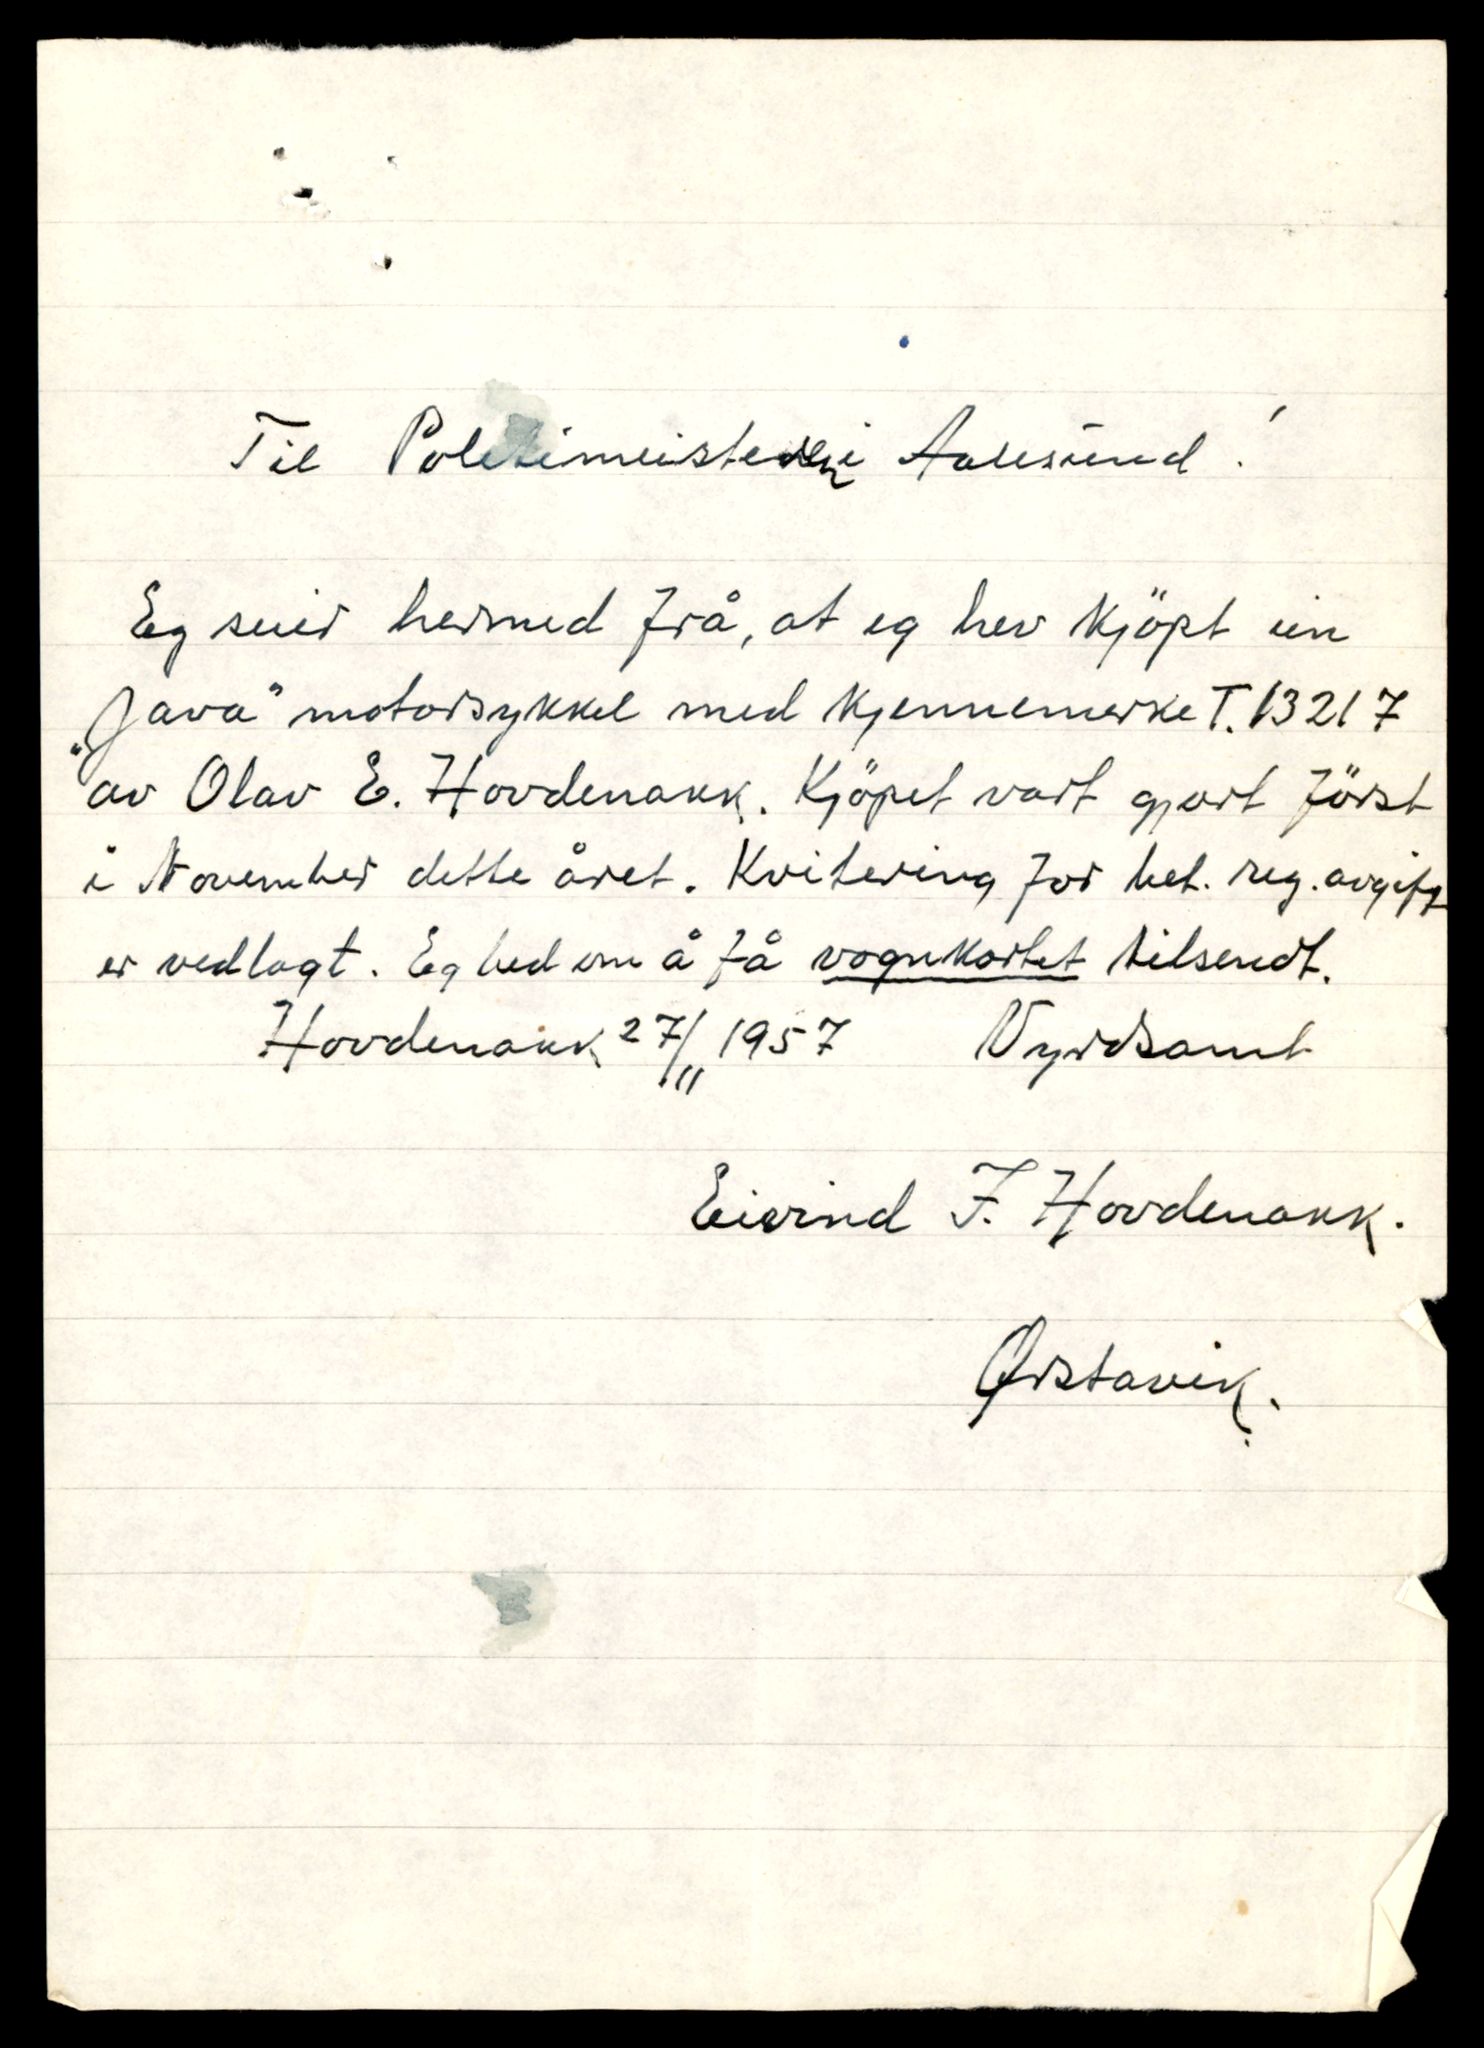 Til Politimeisteren i Aalesund!
Eg seier hermed frå, at eg hev kjöpt ein
"Java" motorsykkel med kjennemerke T.13217
av Olav E. Hovdenakk. Kjöpet vart gjort först
i November dette året. Kvitering for bet. reg. avgift
er vedlagt. Eg bed om å få vognkortet tilsendt.
Hovdenakk 27/11 1957 Vyrdsamt
Eivind F. Hovdenakk.
Ørstavik.